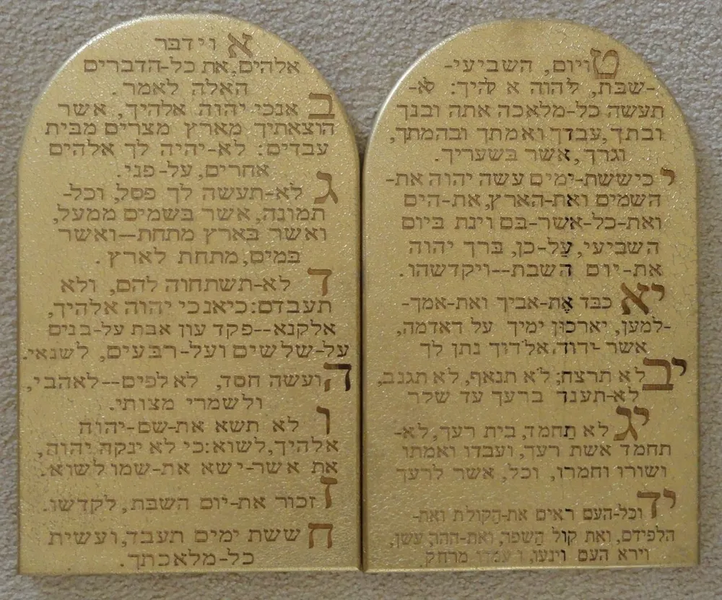 א וידבר
אלהים,את כל-הדברים
האלה לאמר.
ב אנכי יהוה אלהיך, אשר
הוצאתיך מארץ מצרים מבית
עבדים: לא-יהיה לך אלהים
אחרים, על-פני.
ג לא-תעשה לך פסל, וכל-
תמונה, אשר בשמים ממעל,
ואשר בארץ מתחת--ואשר
במים, מתחת לארץ.
ד לא-תשתחוה להם, ולא
תעבדם: כיאנכי יהוה אלהיך,
אלקנא--פקד עון אבת על-בנים
על-שלשים ועל-רבעים, לשנאי.
ה ועשה חסד, לאלפים--לאהבי,
ולשמרי מצותי.
ו לא תשא את-שם-יהוה
אלהיך, לשוא: כי לא ינקה יהוה,
את אשר-ישא את-שמו לשוא.
ז זכור את-יום השבת, לקדשו.
ח ששת ימים תעבד, ועשית
כל-מלאכתך.
ט ויום, השביעי-
-שבת, ליהוה אלהיך: לא-
תעשה כל-מלאכה אתה ובנך
ובתך, עבדך ואמתך ובהמתך,
וגרך, אשר בשעריך.
י כיששת-ימים עשה יהוה את-
השמים ואת-הארץ, את-הים
ואת-כל-אשר-בם וינח ביום
השביעי, על-כן, ברך יהוה
את-יום השבת--ויקדשהו.
יא כבד את-אביך ואת-אמך-
-למען, יארכון ימיך על האדמה,
אשר-יהוה אלהיך נתן לך
יב לא תרצח; לא תנאף, לא תגנב,
לא-תענה ברעך עד שקר
יג לא תחמד, בית רעך, לא-
תחמד אשת רעך, ועבדו ואמתו
ושורו וחמרו, וכל, אשר לרעך
יד וכל-העם ראים את-הקולת ואת-
הלפידם, ואת קול השפר, ואת-ההר, עשן,
וירא העם וינעו, ויעמדו מרחק